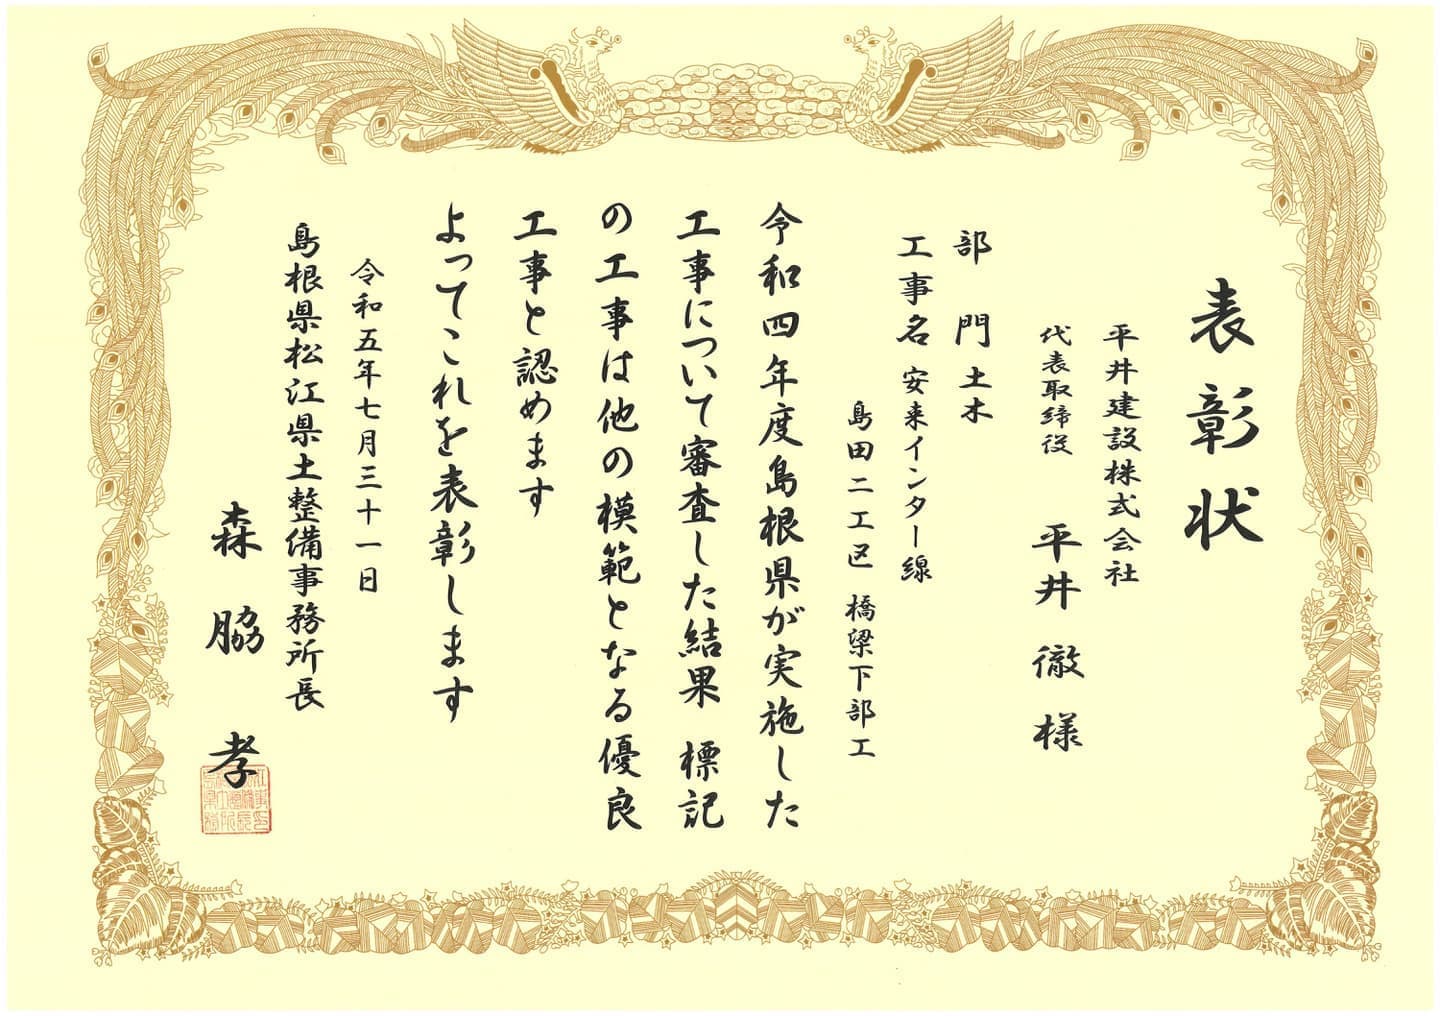 表彰状
平井建設株式会社
代表取締役 平井 徹 様
部門 土木
工事名 安来インター線
島田二工区 橋梁下部工
令和四年度島根県が実施した
工事について審査した結果 標記
の工事は他の模範となる優良
工事と認めます
よってこれを表彰します
令和五年七月三十一日
島根県松江県土整備事務所長
森脇 孝